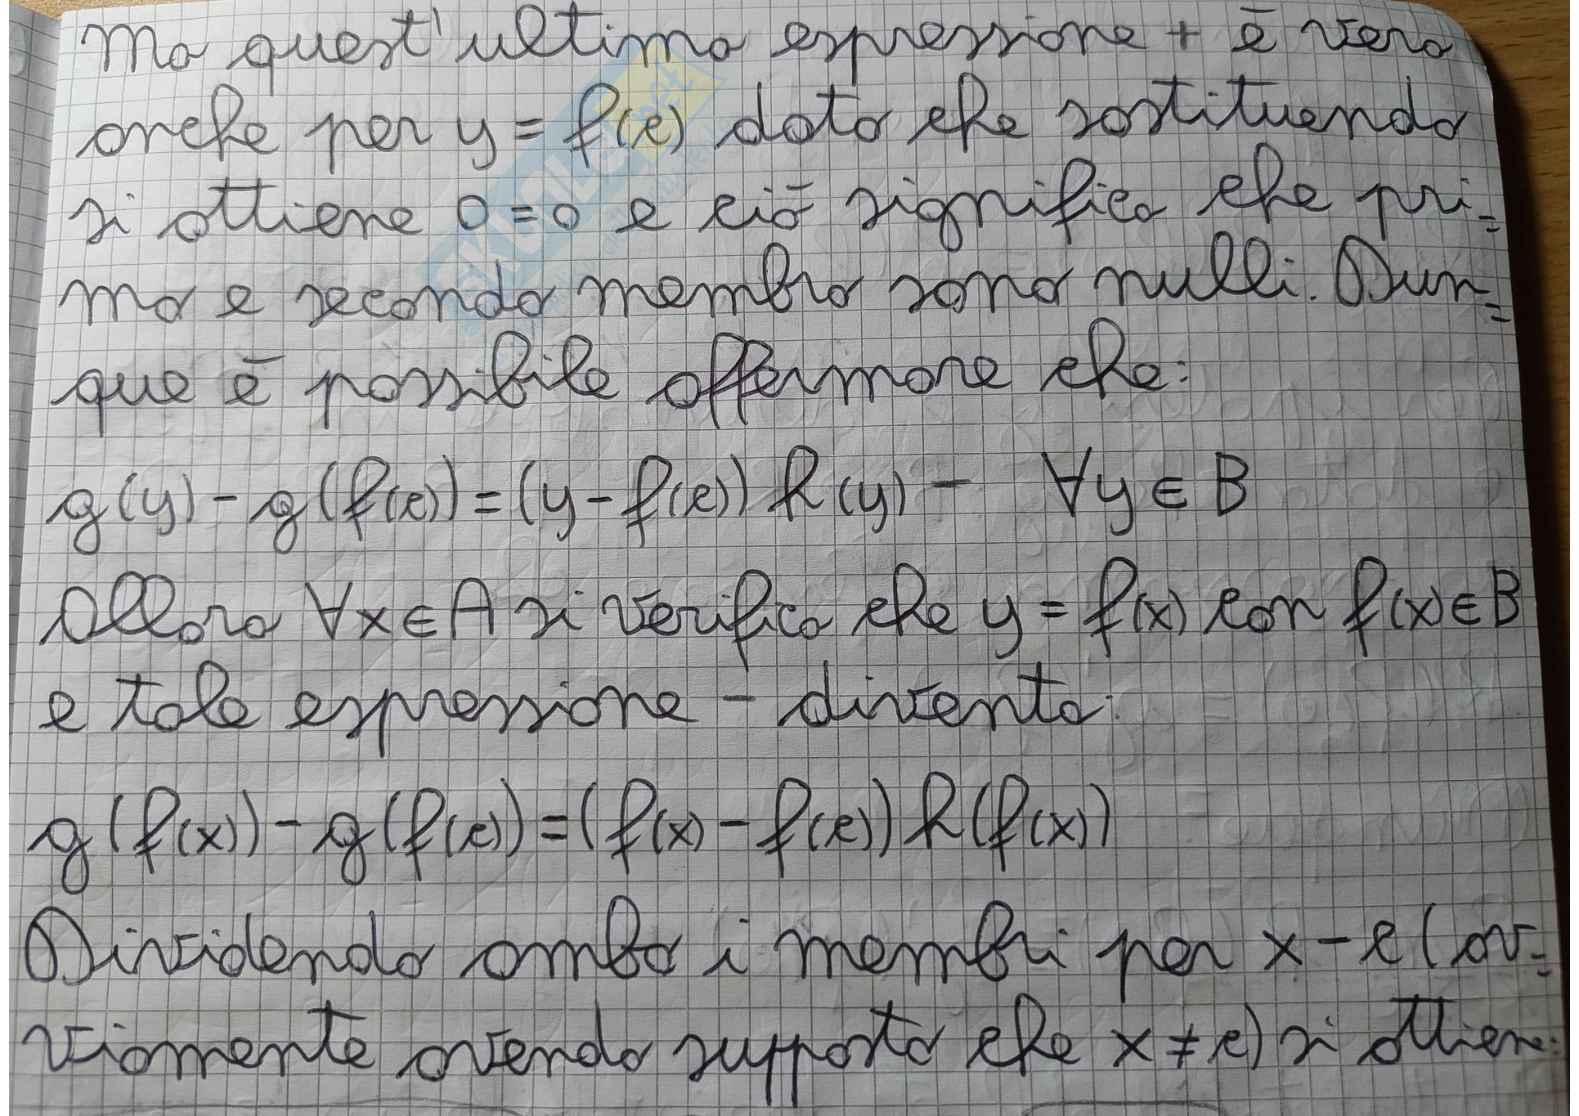 Ma quest'ultima espressione + è vera
anche per y = f(c) dato che sostituendo
si ottiene 0=0 e ciò significa che pri=
mo e secondo membro sono nulli. Dun=
que è possibile affermare che:
g(y) - g(f(c)) = (y - f(c)) h(y) - ∀y ∈ B
Allora ∀x ∈ A si verifica che y = f(x) con f(x) ∈ B
e tale espressione - diventa:
g(f(x)) - g(f(c)) = (f(x) - f(c)) h(f(x))
Dividendo ambo i membri per x - c (ov=
viamente avendo supposto che x ≠ c) si ottiene: